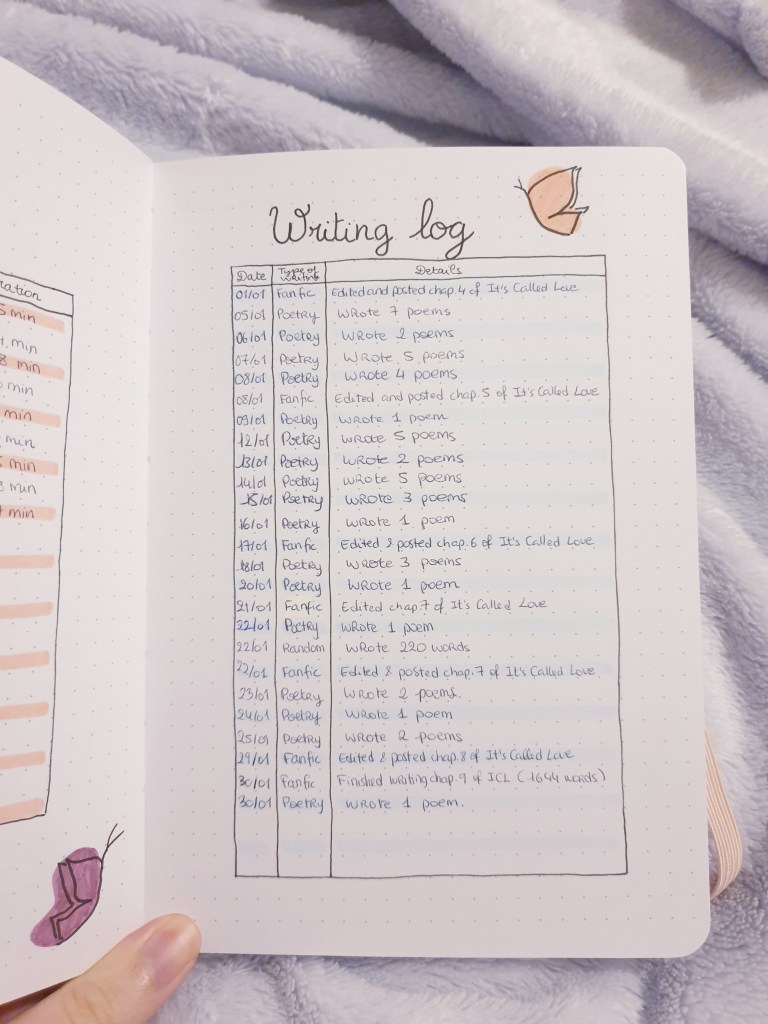 ration
5 min
1 min
8 min
min
min
min
min
3 min
1 min
Writing log
Date Type of writing Details
01/01 Fanfic Edited and posted chap. 4 of It's Called Love
05/01 Poetry Wrote 7 poems
06/01 Poetry Wrote 2 poems
07/01 Poetry Wrote 5 poems
08/01 Poetry Wrote 4 poems
08/01 Fanfic Edited and posted chap. 5 of It's Called Love
09/01 Poetry Wrote 1 poem
12/01 Poetry Wrote 5 poems
13/01 Poetry Wrote 2 poems
14/01 Poetry Wrote 5 poems
15/01 Poetry Wrote 3 poems
16/01 Poetry Wrote 1 poem
17/01 Fanfic Edited & posted chap. 6 of It's Called Love
18/01 Poetry Wrote 3 poems
20/01 Poetry Wrote 1 poem
21/01 Fanfic Edited chap 7 of It's Called Love
22/01 Poetry Wrote 1 poem
22/01 Random Wrote 220 words
22/01 Fanfic Edited & posted chap. 7 of It's Called Love
23/01 Poetry Wrote 2 poems.
24/01 Poetry Wrote 1 poem
25/01 Poetry Wrote 2 poems
29/01 Fanfic Edited & posted chap. 8 of It's Called Love
30/01 Fanfic Finished writing chap. 9 of ICL (1644 words)
30/01 Poetry Wrote 1 poem.